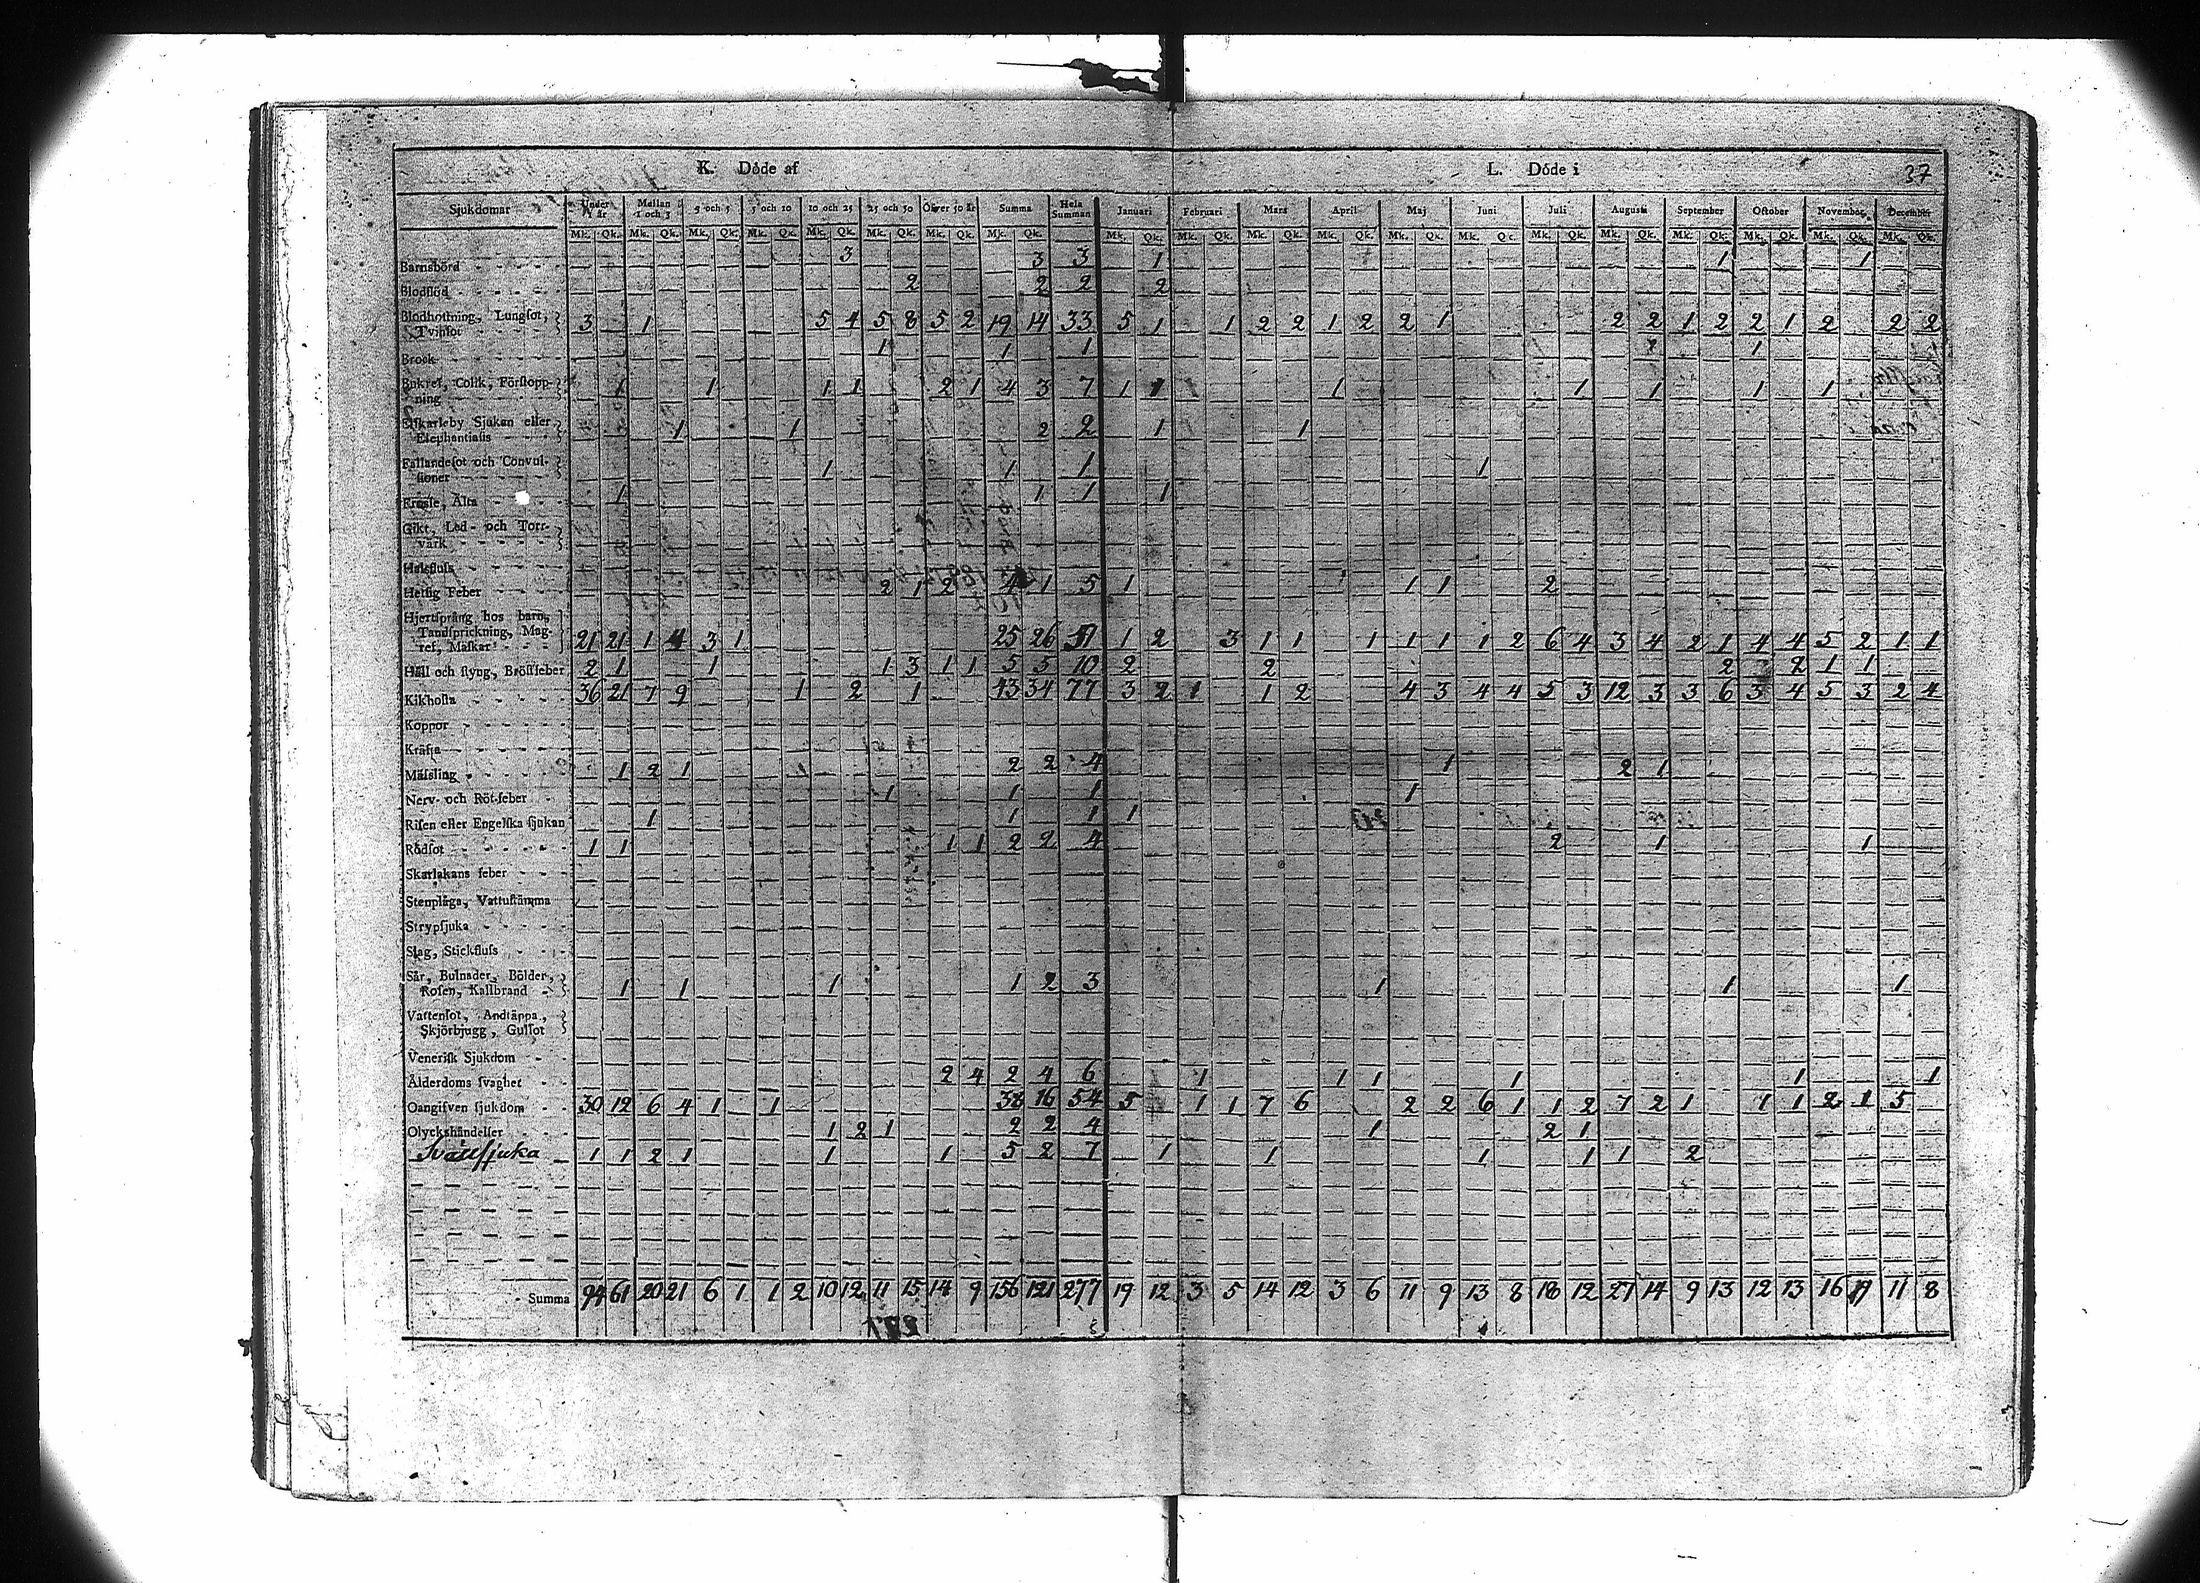 K. Döde af L. Döde i 37
Sjukdomar Under 1 år Mellan 1 och 3 3 och 5 5 och 10 10 och 25 25 och 50 Öfver 50 år Summa Hela Summan Januari Februari Mars April Maj Juni Juli Augusti September October November December
Mk. Qk. Mk. Qk. Mk. Qk. Mk. Qk. Mk. Qk. Mk. Qk. Mk. Qk. Mk. Qk. Mk. Qk. Mk. Qk. Mk. Qk. Mk. Qk. Mk. Qk. Mk. Qk. Mk. Qk. Mk. Qk. Mk. Qk. Mk. Qk. Mk. Qk. Mk. Qk.
Barnsbörd 3 3 3 1 1 1
Blodflöd 2 2 2 2
Blodhoſtning, Lungſot,
Tvinſot 3 1 5 4 5 8 5 2 19 14 33 5 1 1 2 2 1 2 2 1 2 2 1 2 2 1 2 2 2
Brock 1 1 1 1
Bukref, Colik, Förſtopp-
ning 1 1 1 1 2 1 4 3 7 1 1 1 1 1 1 1
Elfkarleby Sjukan eller
Elephantiaſis 1 1 2 2 1 1
Fallandeſot och Convul-
ſioner 1 1 1 1
Froſſe, Älta 1 1 1 1
Gikt, Led- och Torr-
värk
Halsfluſs
Hetſig Feber 2 1 2 4 1 5 1 1 1 2
Hjertſprång hos barn,
Tandſprickning, Mag-
ref, Maſkar 21 21 1 4 3 1 25 26 51 1 2 3 1 1 1 1 1 1 2 6 4 3 4 2 1 4 4 5 2 1 1
Håll och ſtyng, Bröſtfeber 2 1 1 1 3 1 1 5 5 10 2 2 2 2 1 1
Kikhoſta 36 21 7 9 1 2 1 43 34 77 3 2 1 1 2 4 3 4 4 5 3 12 3 3 6 3 4 5 3 2 4
Koppor
Kräfta
Mäſsling 1 2 1 2 2 4 1 2 1
Nerv- och Röt-feber 1 1 1 1
Riſen eller Engelſka ſjukan 1 1 1 1
Rödſot 1 1 1 1 2 2 4 2 1 1
Skarlakans feber
Stenplåga, Vattuſtämma
Strypſjuka
Slag, Stickfluſs
Sår, Bulnader, Bölder,
Roſen, Kallbrand 1 1 1 1 2 3 1 1 1
Vattenſot, Andtäppa,
Skjörbjugg, Gulſot
Veneriſk Sjukdom
Ålderdoms ſvaghet 2 4 2 4 6 1 1 1 1 1 1
Oangifven ſjukdom 30 12 6 4 1 1 38 16 54 5 1 1 7 6 2 2 6 1 1 2 7 2 1 1 1 2 1 5
Olyckshändelſer 1 2 1 2 2 4 1 2 1
1 1 2 1 1 1 5 2 7 1 1 1 1 1 2
Summa 94 61 20 21 6 1 1 2 10 12 11 15 14 9 156 121 277 19 12 3 5 14 12 3 6 11 9 13 8 18 12 27 14 9 13 12 13 16 11 8